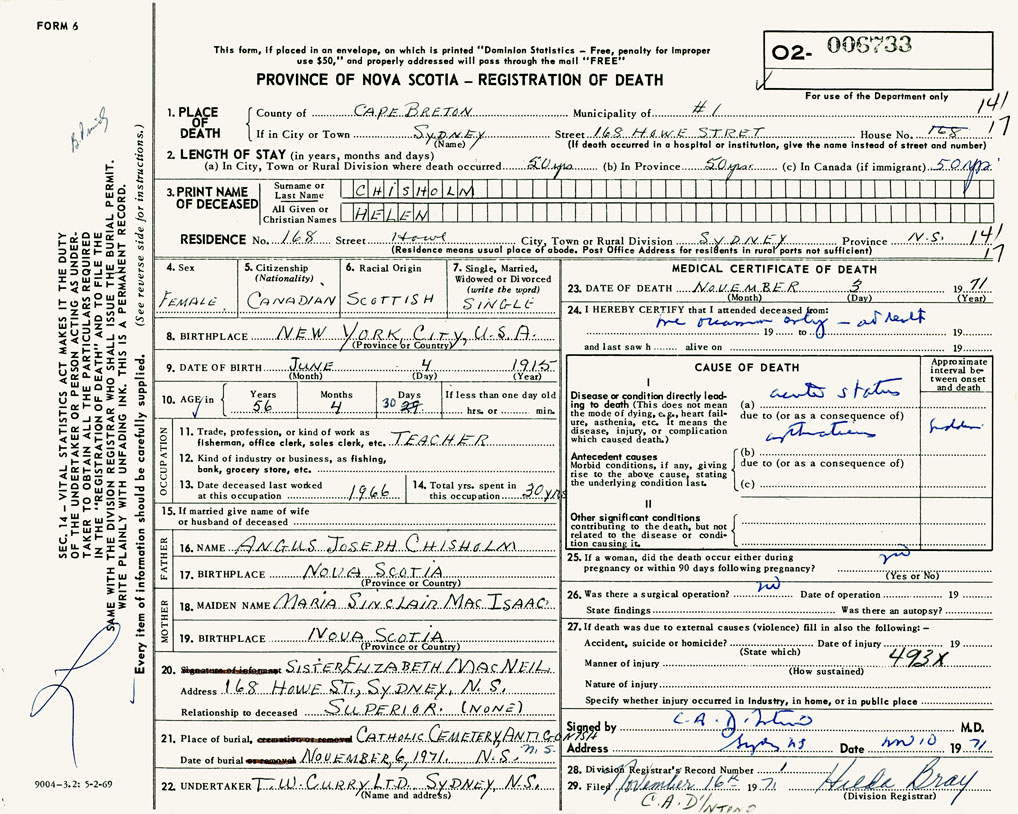 FORM 6
This form, if placed in an envelope, on which is printed "Dominion Statistics – Free, penalty for improper
use $50," and properly addressed will pass through the mail "FREE"
PROVINCE OF NOVA SCOTIA – REGISTRATION OF DEATH
O2- 006733
For use of the Department only
141
17
1. PLACE OF DEATH
County of CAPE BRETON Municipality of #1
If in City or Town SYDNEY Street 168 HOWE STRET House No. 168
(Name) (If death occurred in a hospital or institution, give the name instead of street and number)
2. LENGTH OF STAY (in years, months and days)
(a) In City, Town or Rural Division where death occurred 50 yrs (b) In Province 50 yrs. (c) In Canada (if immigrant) 50 yrs
3. PRINT NAME OF DECEASED
Surname or Last Name CHISHOLM
All Given or Christian Names HELEN
RESIDENCE No. 168 Street Howe City, Town or Rural Division SYDNEY Province N.S. 141
(Residence means usual place of abode. Post Office Address for residents in rural parts not sufficient) 17
4. Sex FEMALE
5. Citizenship (Nationality) CANADIAN
6. Racial Origin SCOTTISH
7. Single, Married, Widowed or Divorced (write the word) SINGLE
8. BIRTHPLACE NEW YORK, CITY, U.S.A.
(Province or Country)
9. DATE OF BIRTH JUNE 4 1915
(Month) (Day) (Year)
10. AGE in Years 56 Months 4 Days 30 29 If less than one day old hrs. or min.
OCCUPATION
11. Trade, profession, or kind of work as fisherman, office clerk, sales clerk, etc. TEACHER
12. Kind of industry or business, as fishing, bank, grocery store, etc.
13. Date deceased last worked at this occupation 1966
14. Total yrs. spent in this occupation 30 yrs
15. If married give name of wife or husband of deceased
FATHER
16. NAME ANGUS JOSEPH CHISHOLM
17. BIRTHPLACE NOVA SCOTIA
(Province or Country)
MOTHER
18. MAIDEN NAME MARIA SINCLAIR MAC ISAAC
19. BIRTHPLACE NOVA SCOTIA
(Province or Country)
20. Signature of informant SISTER ELIZABETH MACNEIL
Address 168 HOWE ST., SYDNEY, N.S.
Relationship to deceased SUPERIOR. (NONE)
21. Place of burial, cremation or removal CATHOLIC CEMETERY, ANTIGONISH
Date of burial or removal NOVEMBER 6, 1971. N.S. n.s.
22. UNDERTAKER T.W. CURRY LTD. SYDNEY, N.S.
(Name and address)
MEDICAL CERTIFICATE OF DEATH
23. DATE OF DEATH NOVEMBER 3 1971
(Month) (Day) (Year)
24. I HEREBY CERTIFY that I attended deceased from:
one occasion only – at death
19 to 19
and last saw h alive on 19
CAUSE OF DEATH
Approximate interval between onset and death
I
Disease or condition directly leading to death (This does not mean the mode of dying, e.g., heart failure, asthenia, etc. It means the disease, injury, or complication which caused death.)
(a) acute status
due to (or as a consequence of)
asthmaticus sudden
Antecedent causes
Morbid conditions, if any, giving rise to the above cause, stating the underlying condition last.
(b)
due to (or as a consequence of)
(c)
II
Other significant conditions contributing to the death, but not related to the disease or condition causing it.
25. If a woman, did the death occur either during pregnancy or within 90 days following pregnancy? no
(Yes or No)
26. Was there a surgical operation? no Date of operation 19
State findings Was there an autopsy?
27. If death was due to external causes (violence) fill in also the following: –
Accident, suicide or homicide? Date of injury 19
(State which)
Manner of injury 493X
(How sustained)
Nature of injury
Specify whether injury occurred in Industry, in home, or in public place
Signed by C.A. D'Intino M.D.
Address Sydney NS Date Nov 10 1971
28. Division Registrar's Record Number 1
29. Filed November 16th 1971 Hilda Bray
C.A. D'INTINO (Division Registrar)
SEC. 14 – VITAL STATISTICS ACT MAKES IT THE DUTY
OF THE UNDERTAKER OR PERSON ACTING AS UNDER-
TAKER TO OBTAIN ALL THE PARTICULARS REQUIRED
IN THE "REGISTRATION OF DEATH" AND TO FILE THE
SAME WITH THE DIVISION REGISTRAR WHO SHALL ISSUE THE BURIAL PERMIT.
WRITE PLAINLY WITH UNFADING INK. THIS IS A PERMANENT RECORD.
Every item of information should be carefully supplied. (See reverse side for instructions.)
9004–3.2: 5-2-69